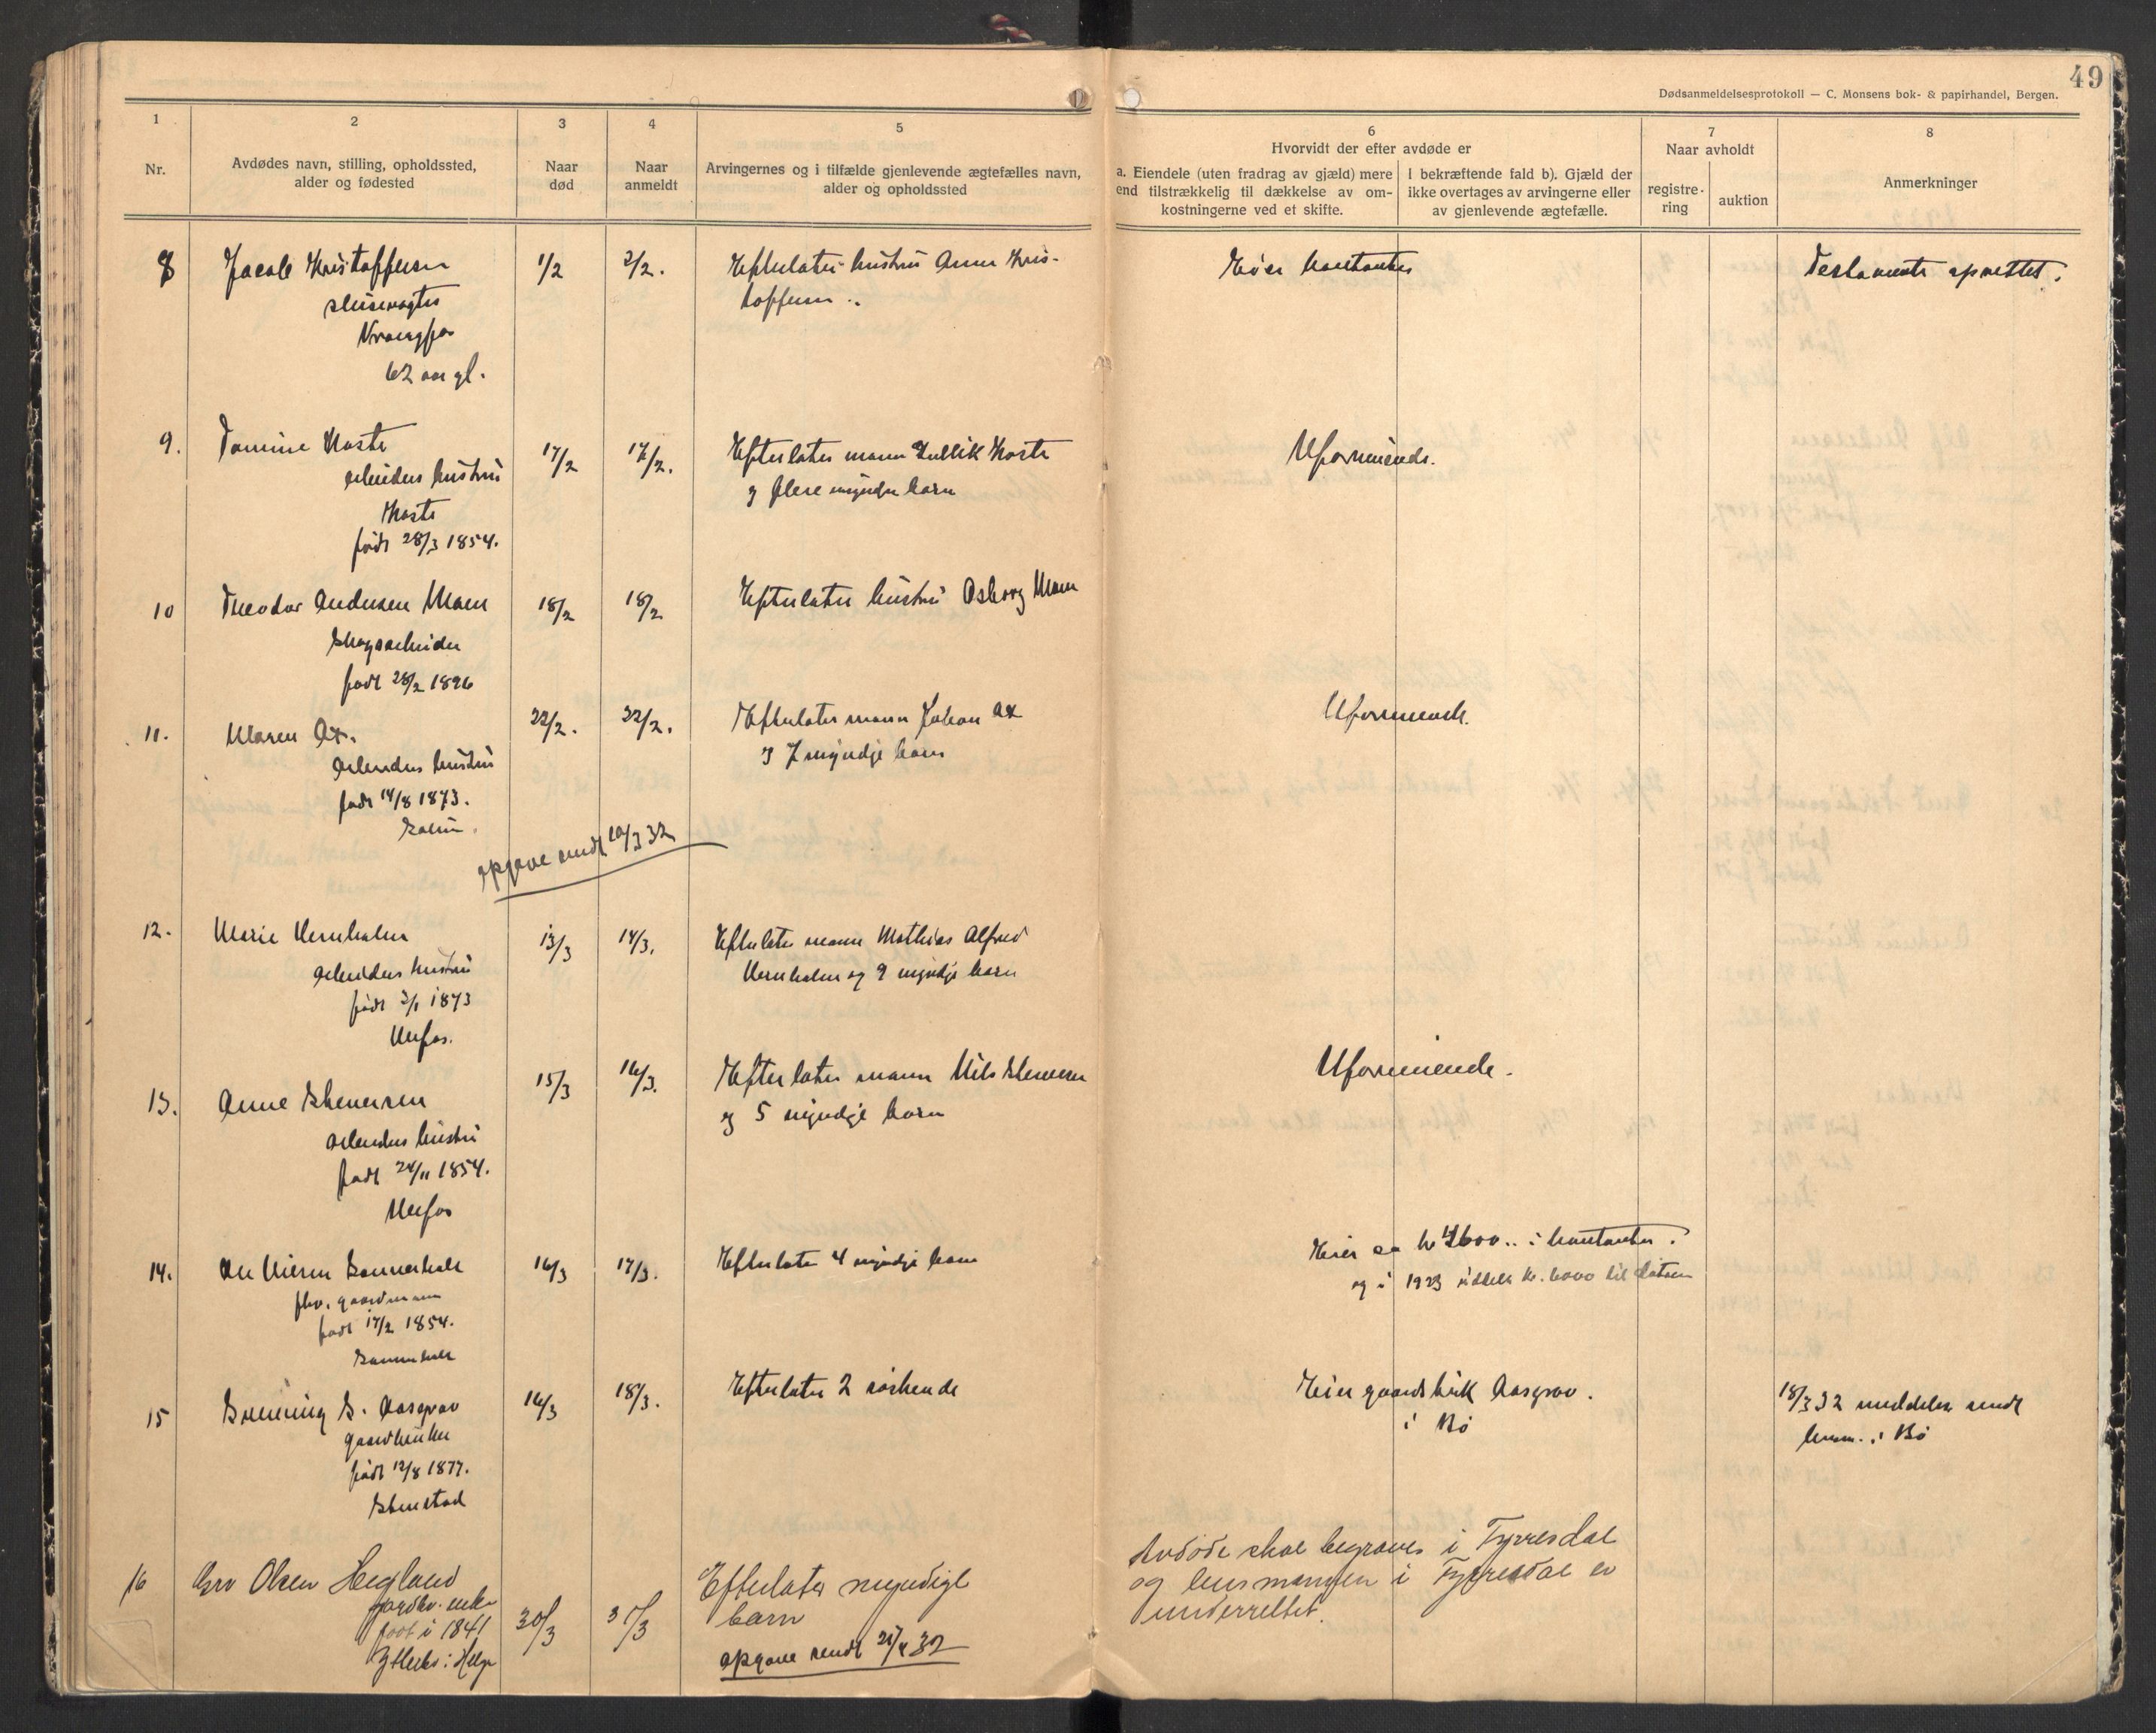 49
Dødsanmeldelsesprotokoll — C. Monsens bok- & papirhandel, Bergen.
1
Nr.
2
Avdødes navn, stilling, opholdssted,
alder og fødested
3
Naar
død
4
Naar
anmeldt
5
Arvingernes og i tilfælde gjenlevende ægtefælles navn,
alder og opholdssted
6
Hvorvidt der efter avdøde er
a. Eiendele (uten fradrag av gjæld) mere
end tilstrækkelig til dækkelse av om-
kostningerne ved et skifte.
I bekræftende fald b). Gjæld der
ikke overtages av arvingerne eller
av gjenlevende ægtefælle.
7
Naar avholdt
registre-
ring
auktion
8
Anmerkninger
8
Jacob Kristoffersen
slusevogter
62 aar gl.
1/2
2/2.
Efterlater hustru Anne Kris-
toffersen ..
Eier kontanter
Testamente oprettet.
9.
Tomine Kaste
arbeiders hustru
Kaste
født 28/3 1854.
17/2
17/2.
Efterlater mann Gullik Kaste
og flere myndige barn
Uformuende.
10
Theodor Andersen Moen
skogsarbeider
født 28/2 1896
18/2
18/2
Efterlater hustru Asborg Moen
11.
Maren Ax.
arbeiders hustru
født 14/8 1873.
22/2.
22/2.
Efterlater mann Johan Ax
og 7 myndige barn
Uformuende.
opgave sendt 20/3 32
12.
Marie Vernholm
arbeiders hustru
født 3/1 1873
Ulefos.
13/3
14/3.
Efterlater mann Mathias Alfred
Vernholm og 9 myndige barn
13.
Anne Stenersen
arbeiders hustru
født 24/11 1854.
Ulefos
15/3
16/3.
Efterlater mann Nils Stenersen
og 5 myndige barn
Uformuende.
14.
Ole Nilsen
fhv. gaardmann
født 17/2 1854.
16/3
17/3.
Efterlater 4 myndige barn
Eier ca kr 4600.. i kontanter.
og i 1923 utdelt kr. 6000 til
15
S. Aasgrav
født 12/8 1877.
Stenstad
16/3
18/3.
Efterlater 2 søskende
Eier gaardsbruk Aasgrav.
i Bø
18/3 32 meddelse sendt
lensm. i Bø
16
Gro Olsen Hegland
gardbr. enke
født i 1841
30/3
31/3
Efterlater myndige
barn
opgave sendt 21/4 32
Avdøde skal begraves i Fyresdal
og lensmannen i Fyresdal er
underrettet.